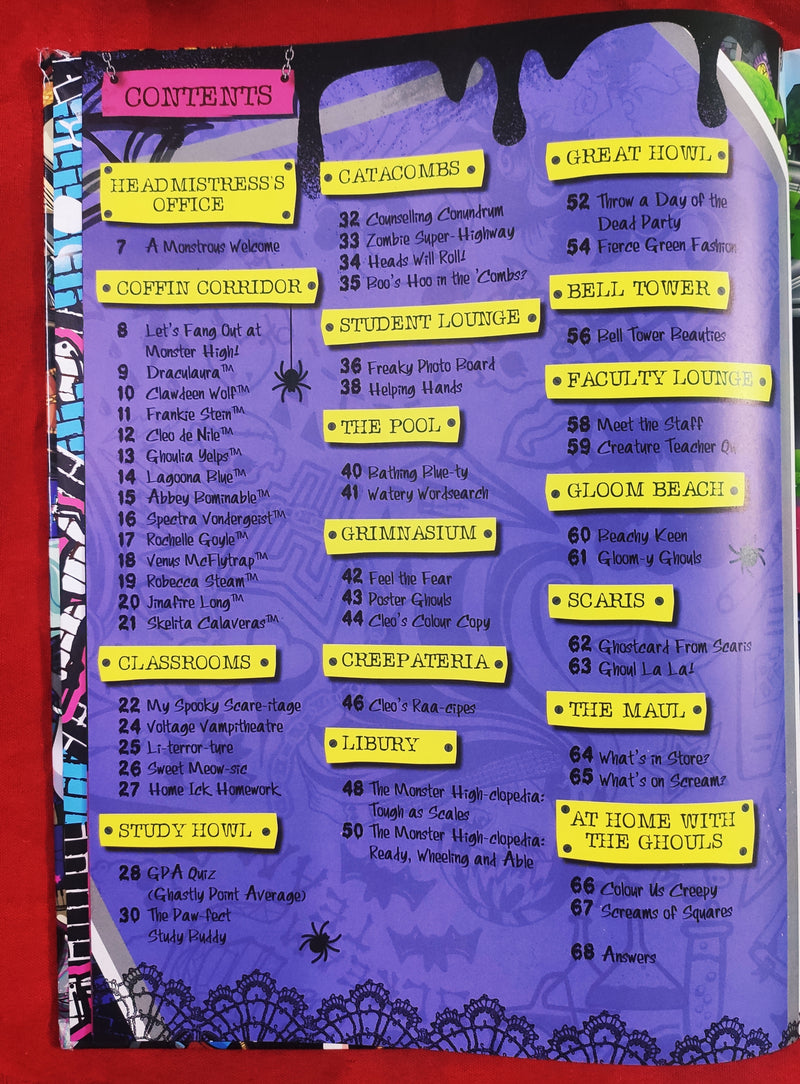 CONTENTS
HEADMISTRESS'S
OFFICE
7 A Monstrous Welcome
COFFIN CORRIDOR
8 Let's Fang Out at
Monster High!
9 Draculaura™
10 Clawdeen Wolf™
11 Frankie Stein™
12 Cleo de Nile™
13 Ghoulia Yelps™
14 Lagoona Blue™
15 Abbey Bominable™
16 Spectra Vondergeist™
17 Rochelle Goyle™
18 Venus McFlytrap™
19 Robecca Steam™
20 Jinafire Long™
21 Skelita Calaveras™
CLASSROOMS
22 My Spooky Scare-itage
24 Voltage Vampitheatre
25 Li-terror-ture
26 Sweet Meow-sic
27 Home Ick Homework
STUDY HOWL
28 GPA Quiz
(Ghastly Point Average)
30 The Paw-fect
Study Buddy
CATACOMBS
32 Counselling Conundrum
33 Zombie Super-Highway
34 Heads Will Roll!
35 Boo's Hoo in the 'Combs?
STUDENT LOUNGE
36 Freaky Photo Board
38 Helping Hands
THE POOL
40 Bathing Blue-ty
41 Watery Wordsearch
GRIMNASIUM
42 Feel the Fear
43 Poster Ghouls
44 Cleo's Colour Copy
CREEPATERIA
46 Cleo's Raa-cipes
LIBURY
48 The Monster High-clopedia:
Tough as Scales
50 The Monster High-clopedia:
Ready, Wheeling and Able
GREAT HOWL
52 Throw a Day of the
Dead Party
54 Fierce Green Fashion
BELL TOWER
56 Bell Tower Beauties
FACULTY LOUNGE
58 Meet the Staff
59 Creature Teacher
GLOOM BEACH
60 Beachy Keen
61 Gloom-y Ghouls
SCARIS
62 Ghostcard From Scaris
63 Ghoul La La!
THE MAUL
64 What's in Store?
65 What's on Scream?
AT HOME WITH
THE GHOULS
66 Colour Us Creepy
67 Screams of Squares
68 Answers